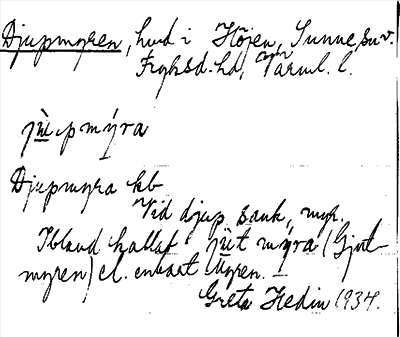 Djupmyren, hmd i Höjen, Sunne sn v.
Fryksd. hd, Värml. l.
jùpmy̆ra
Djupmyra kb
Vid djup, sank, myr.
Ibland kallat jùtmy̆ra (Gjut-
myren) el. enbart Myren.
Greta Hedin 1934.